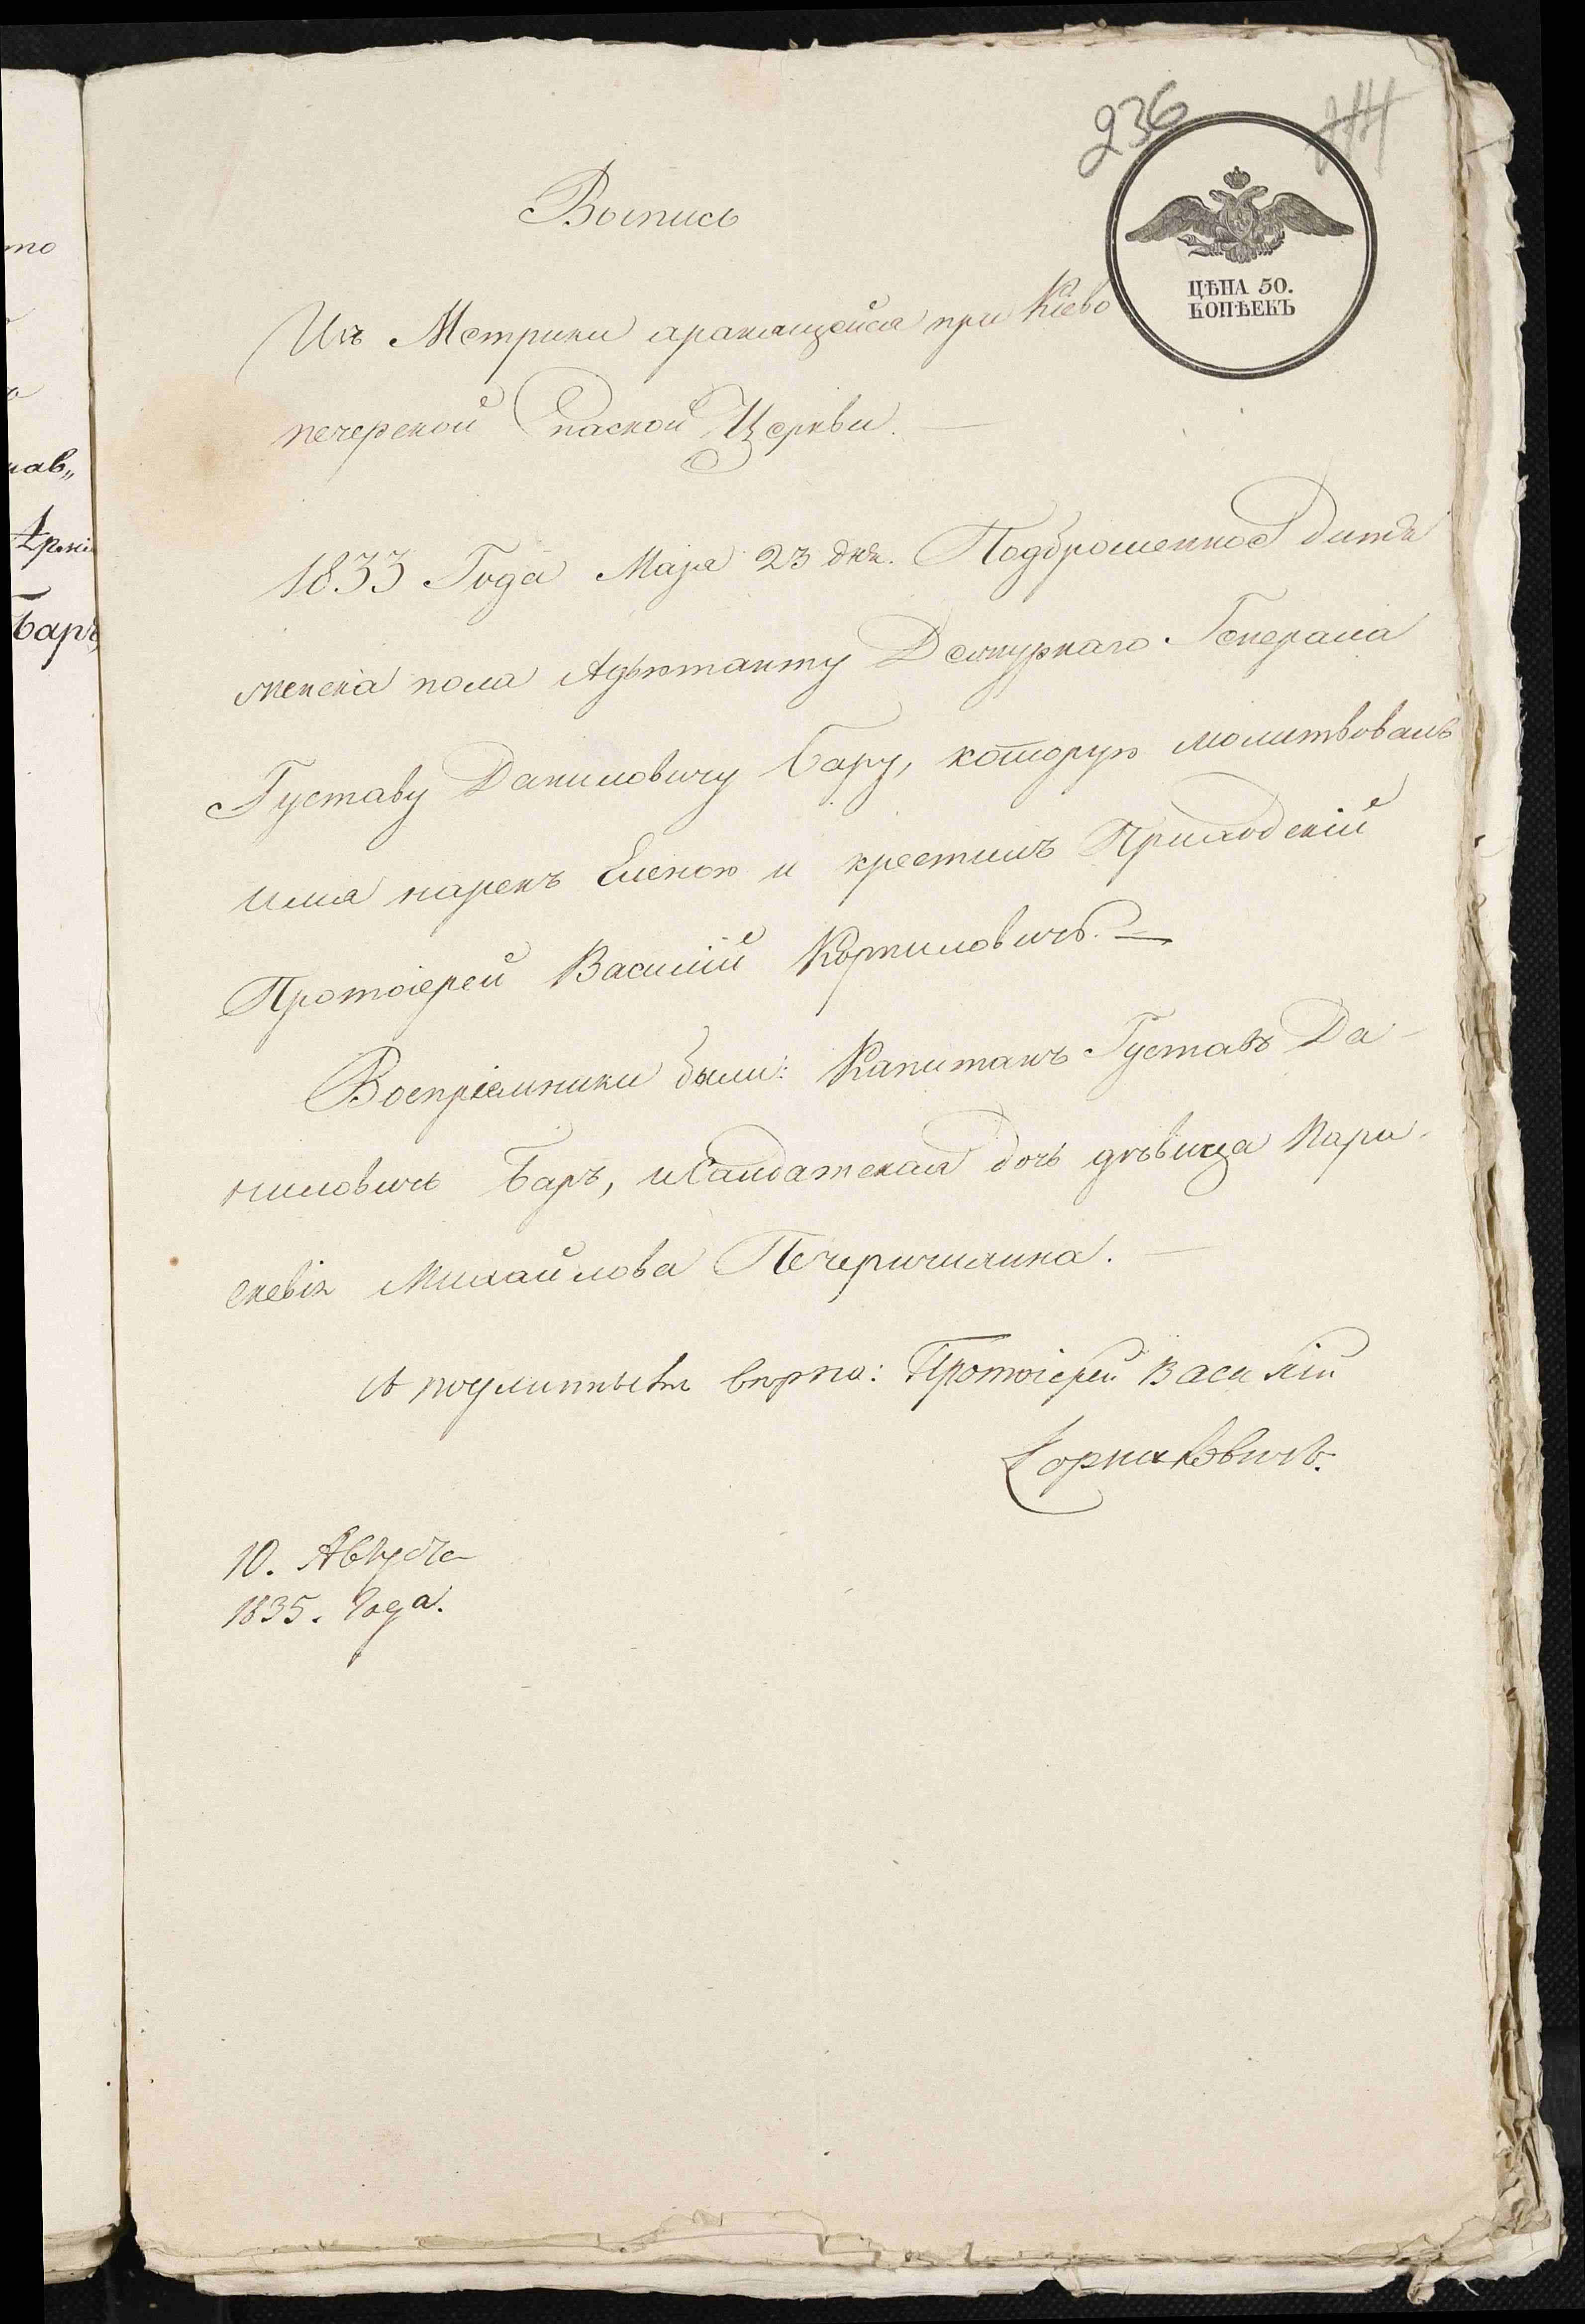 236
ЦѢНА 50.
КОПѢЕКЪ
Выпись
Изъ Метрики хранящейся при Кіево
печерской Спаской Церкви. —
1833 Года Маія 23 дня. Подброшенное дитя
женска пола Адъютанту Дежурнаго Генерала
Густаву Даниловичу Бару, которую молитвовалъ
имя нарекъ Еленою и крестилъ Приходскій
Протоіерей Василій Корниловичъ. —
Воспріемники были: Капитанъ Густавъ Да-
ниловичь Баръ, и Салдатская дочь дѣвица Пара-
скевія Михайлова Печеричилина. —
Съ подлиннымъ вѣрно: Протоіерей Василій
Корниловичъ.
10. Августа
1835. Года.
то
нав„
Баръ,